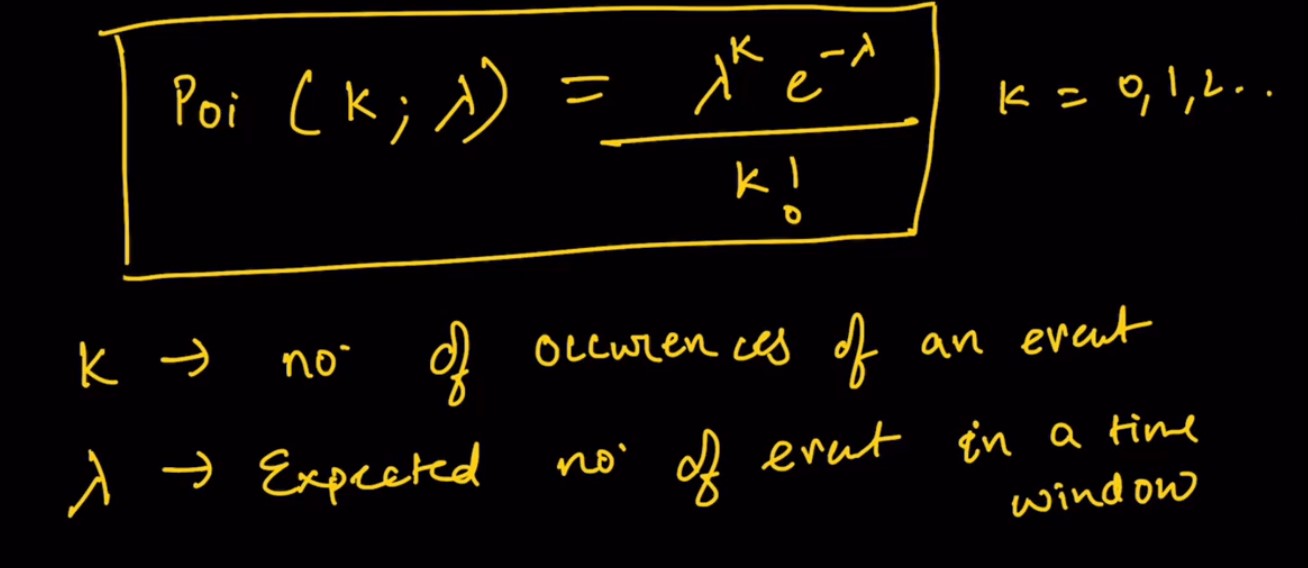 Poi (K; λ) = λ^K e^-λ / K! K = 0,1,2..
K → no. of occurences of an event
λ → Expected no. of event in a time
window